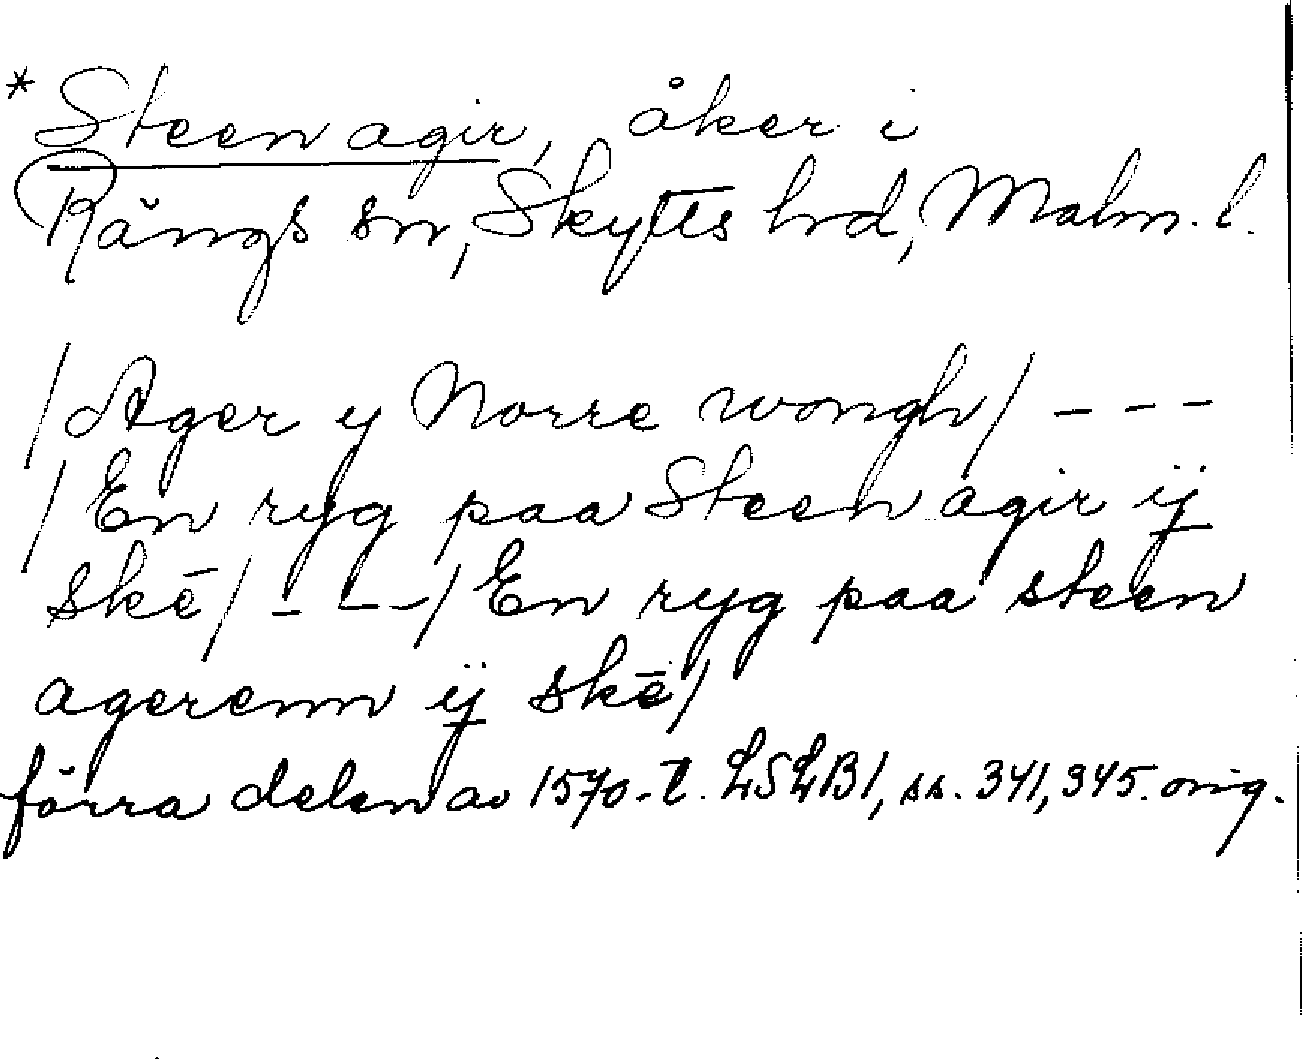 * Steen agir, åker i
Rängs sn, Skytts hrd, Malm. l.
/Ager y Norre wongh/ - - -
/En ryg paa Steen agir ij
skē/ - - - /En ryg paa steen
agerenn ij skē/
förra delen av 1570-t. LSLB1, ss. 341, 345. orig.